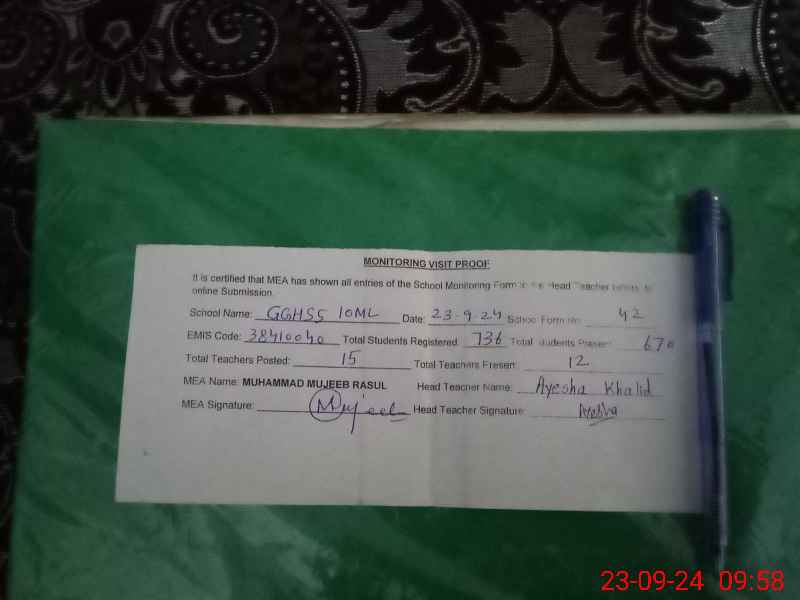 MONITORING VISIT PROOF
It is certified that MEA has shown all entries of the School Monitoring Form to the Head Teacher before to
online Submission.
School Name: GGHSS 10ML Date: 23-9-24 School Form No: 42
EMIS Code: 38410040 Total Students Registered: 736 Total Students Present: 670
Total Teachers Posted: 15 Total Teachers Present: 12
MEA Name: MUHAMMAD MUJEEB RASUL Head Teacher Name: Ayesha Khalid
MEA Signature: Mujeeb Head Teacher Signature: Ayesha
23-09-24 09:58